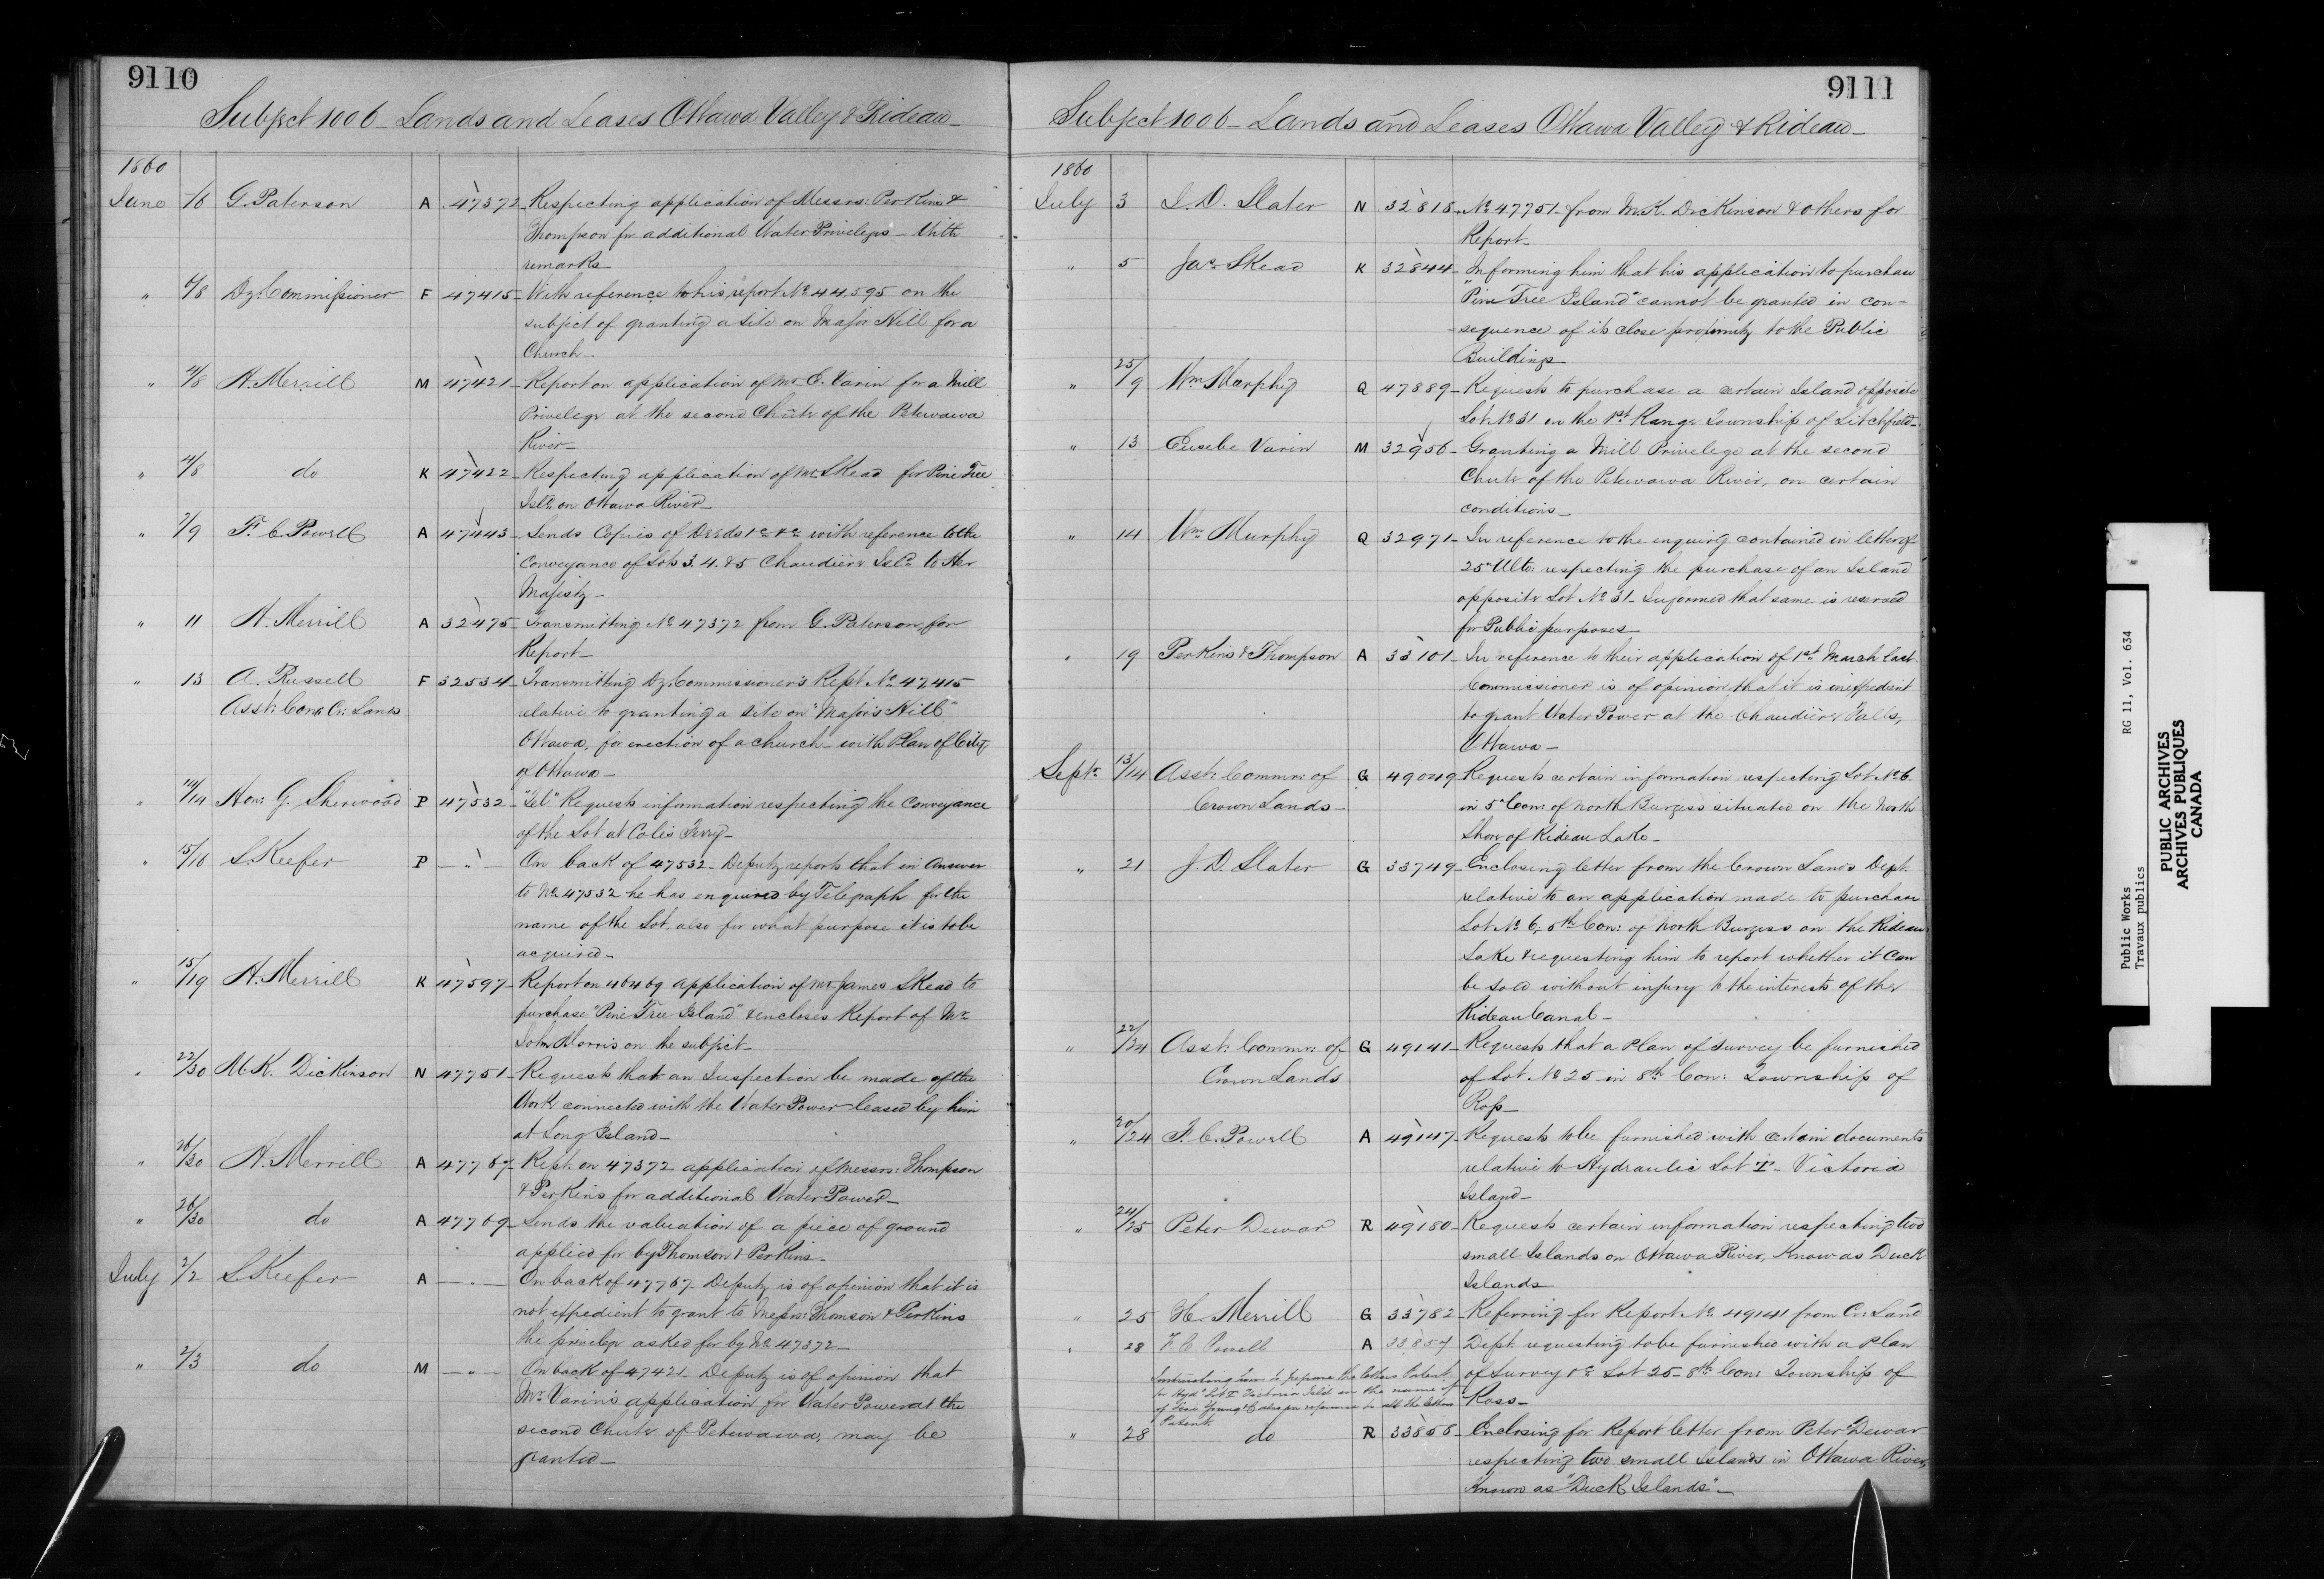 9110
Subject 1006 - Lands and Leases Ottawa Valley & Rideau -
1860
June /6 G. Paterson A 47372 - Respecting application of Messrs: Perkins &
Thompson for additional Water Privileges - With
remarks
" 6/8 Dy: Commissioner F 47415 - With reference to his report No 44,595 on the
subject of granting a site on Major Hill for a
Church -
" 4/8 H. Merrill M 47421 - Report on application of Mr E. Varin for a Mill
Privilege at the second Chute of the Petewawa
River -
" 4/8 do K 47422 - Respecting application of Mr Skead for Pine Tree
Isld: on Ottawa River -
" 7/9 F. C. Powell A 47443 - Sends Copies of Deeds &c &c with reference to the
Conveyance of Lots 3. 4. & 5 Chaudière Isld to Her
Majesty -
" 11 H. Merrill A 32475 - Transmitting No 47372 from G. Paterson for
Report -
" 13 A. Russell F 32534 - Transmitting Dy: Commissioner's Rept No 47,415
Asst: Comr Cr: Lands relative to granting a site on "Major's Hill"
Ottawa, for erection of a church - with Plan of City
of Ottawa -
" 14/14 Hon: G. Sherwood P 47532 - "Tel" Requests information respecting the Conveyance
of the Lot at Coles Ferry -
" 15/16 S. Keefer P — " — On back of 47532 - Deputy reports that in answer
to No 47532 he has enquired by Telegraph for the
name of the Lot also for what purpose it is to be
acquired -
" 15/19 H. Merrill K 47597 - Report on 46469 application of Mr James Skead to
purchase "Pine Tree Island" & encloses Report of Mr
John Morris on the subject -
" 22/30 M. K. Dickinson N 47751 - Requests that an Inspection be made of the
Work connected with the Water Power leased by him
at Long Island -
" 26/30 H. Merrill A 47767 - Rept. on 47372 application of Messrs: Thompson
& Perkins for additional Water Power -
" 26/30 do A 47769 - Sends the valuation of a piece of ground
applied for by Thomson & Perkins -
July 2/2 S. Keefer A — " — On back of 47767 - Deputy is of opinion that it is
not expedient to grant to Messrs: Thomson & Perkins
the privilege asked for by No 47372 -
" 2/3 do M — " — On back of 47421 - Deputy is of opinion that
Mr. Varin's application for Water Power at the
second Chute of Petewawa, may be
granted -
9111
Subject 1006 - Lands and Leases Ottawa Valley & Rideau -
1860
July 3 J. D. Slater N 32818 - No 47751 - from M. K. Dickinson & others for
Report -
" 5 Jas. Skead K 32844 - Informing him that his application to purchase
"Pine Tree Island" cannot be granted in con=
=sequence of its close proximity to the Public
Buildings
" 25/9 Wm Murphy Q 47889 - Requests to purchase a certain Island opposite
Lot No 31 on the 1st Range Township of Litchfield -
" 13 Eusebe Varin M 32956 - Granting a Mill Privilege at the second
Chute of the Petewawa River, on certain
conditions -
" 14 Wm Murphy Q 32971 - In reference to the enquiry contained in letter of
25th Ulto: respecting the purchase of an Island
opposite Lot No 31 - Informed that same is reserved
for Public purposes
" 19 Perkins & Thompson A 33101 - In reference to their application of 1st March last
Commissioner is of opinion that it is inexpedient
to grant Water Power at the Chaudière Falls,
Ottawa -
Septr 13/14 Asst: Commr: of G 49049 Requests certain information respecting Lot No 6.
Crown Lands - in 5th Con: of North Burgess situated on the North
Shore of Rideau Lake -
" 21 J. D. Slater G 33749 - Enclosing letter from the Crown Lands Dept.
relative to an application made to purchase
Lot No 6, 5th Con: of North Burgess on the Rideau
Lake & requesting him to report whether it can
be sold without injury to the interests of the
Rideau Canal -
" 22/24 Asst: Commr: of G 49141 - Requests that a Plan of survey be furnished
Crown Lands of Lot No 25 in 8th Con: Township of
Ross -
" 20/24 F. C. Powell A 49147 - Requests to be furnished with certain documents
relative to Hydraulic Lot I - Victoria
Island -
" 24/25 Peter Dewar R 49180 - Requests certain information respecting two
small Islands on Ottawa River, Know as Duck
Islands
" 25 H. Merrill G 33782 - Referring for Report No 49141 from Cr: Land
" 28 F C Powell A 33857 Dept. requesting to be furnished with a Plan
Instructing him to prepare the letters Patent of Survey &c Lot 25 - 8th Con: Township of
for Hydc Lot I Victoria Isld in the name of Ross -
Patent.
" 28 do R 33858 - Enclosing for Report letter from Peter Dewar
respecting two small Islands in Ottawa River,
Known as "Duck Islands" -
Public Works RG 11, Vol. 634
Travaux publics
PUBLIC ARCHIVES
ARCHIVES PUBLIQUES
CANADA